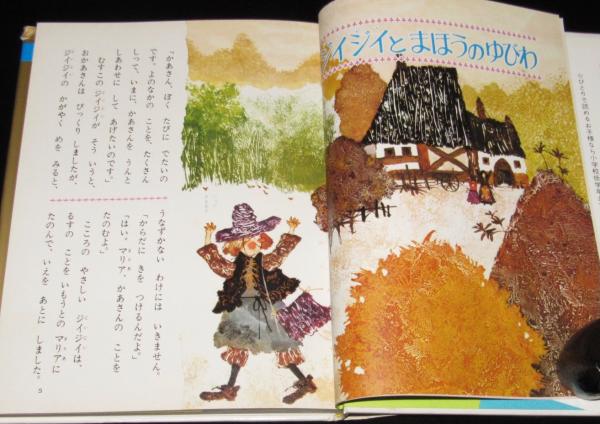 ジイジイとまほうのゆびわ
「かあさん、ぼく たびに でたいの
です。よのなかの ことを、たくさん
しって、いまに、かあさんを うんと
しあわせに して あげたいのです。」
むすこの ジイジイが そう いうと、
おかあさんは びっくり しましたが、
ジイジイの かがやく めを みると、
うなずかない わけには いきません。
「からだに きを つけるんだよ。」
「はい。マリア、かあさんの ことを
たのむよ。」
こころの やさしい ジイジイは、
るすの ことを いもうとの マリアに
たのんで、いえを あとに しました。
5